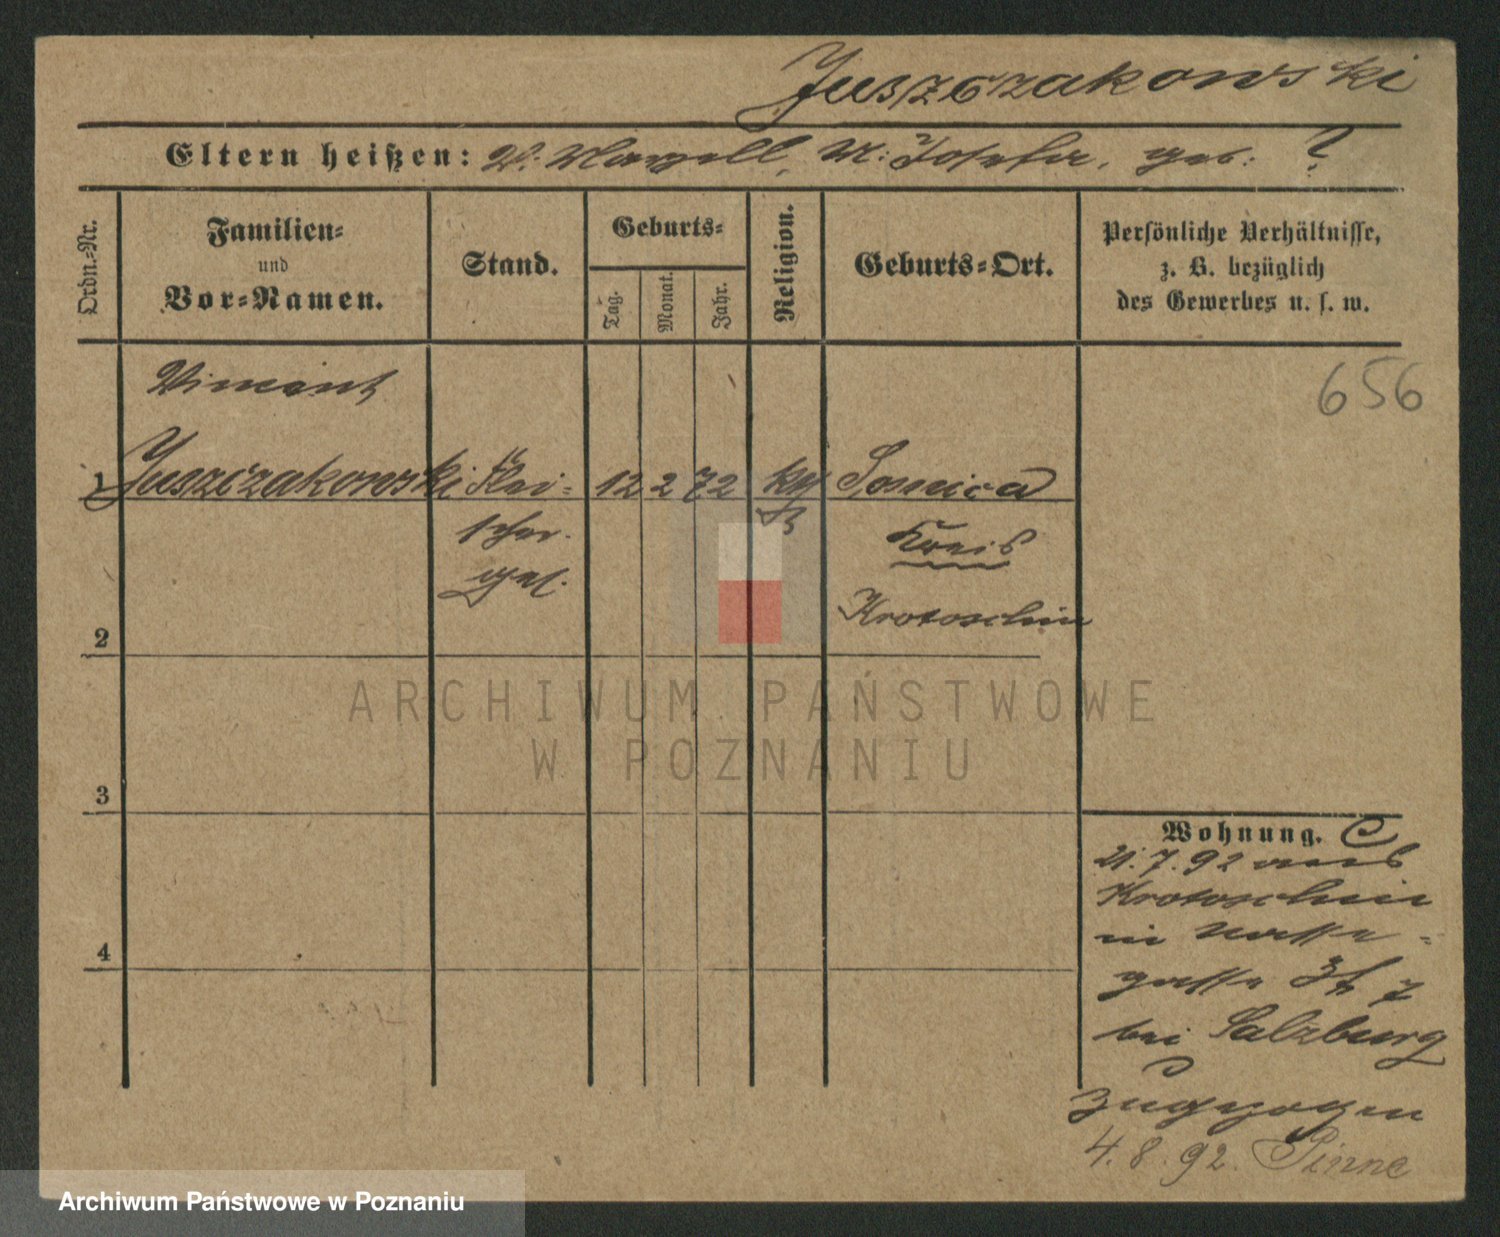 Juszczakowski
Eltern heißen: V: Marzell, M: Josefa, geb: ?
Ordn.-Nr.
Familien=
und
Vor=Namen.
Stand.
Geburts=
Tag.
Monat.
Jahr.
Religion.
Geburts=Ort.
Persönliche Verhältnisse,
z. B. bezüglich
des Gewerbes u. s. w.
656
Vincent
1 Juszczakowski Flei= 12 2 72 kth
scher
ges.
Kreis
Krotoschin
2
3
4
Wohnung.
21.7.92 aus
Krotoschin
in Wasser=
gasse 7
bei Salzburg
zugezogen
4.8.92. Pinne
ARCHIWUM PAŃSTWOWE
W POZNANIU
Archiwum Państwowe w Poznaniu